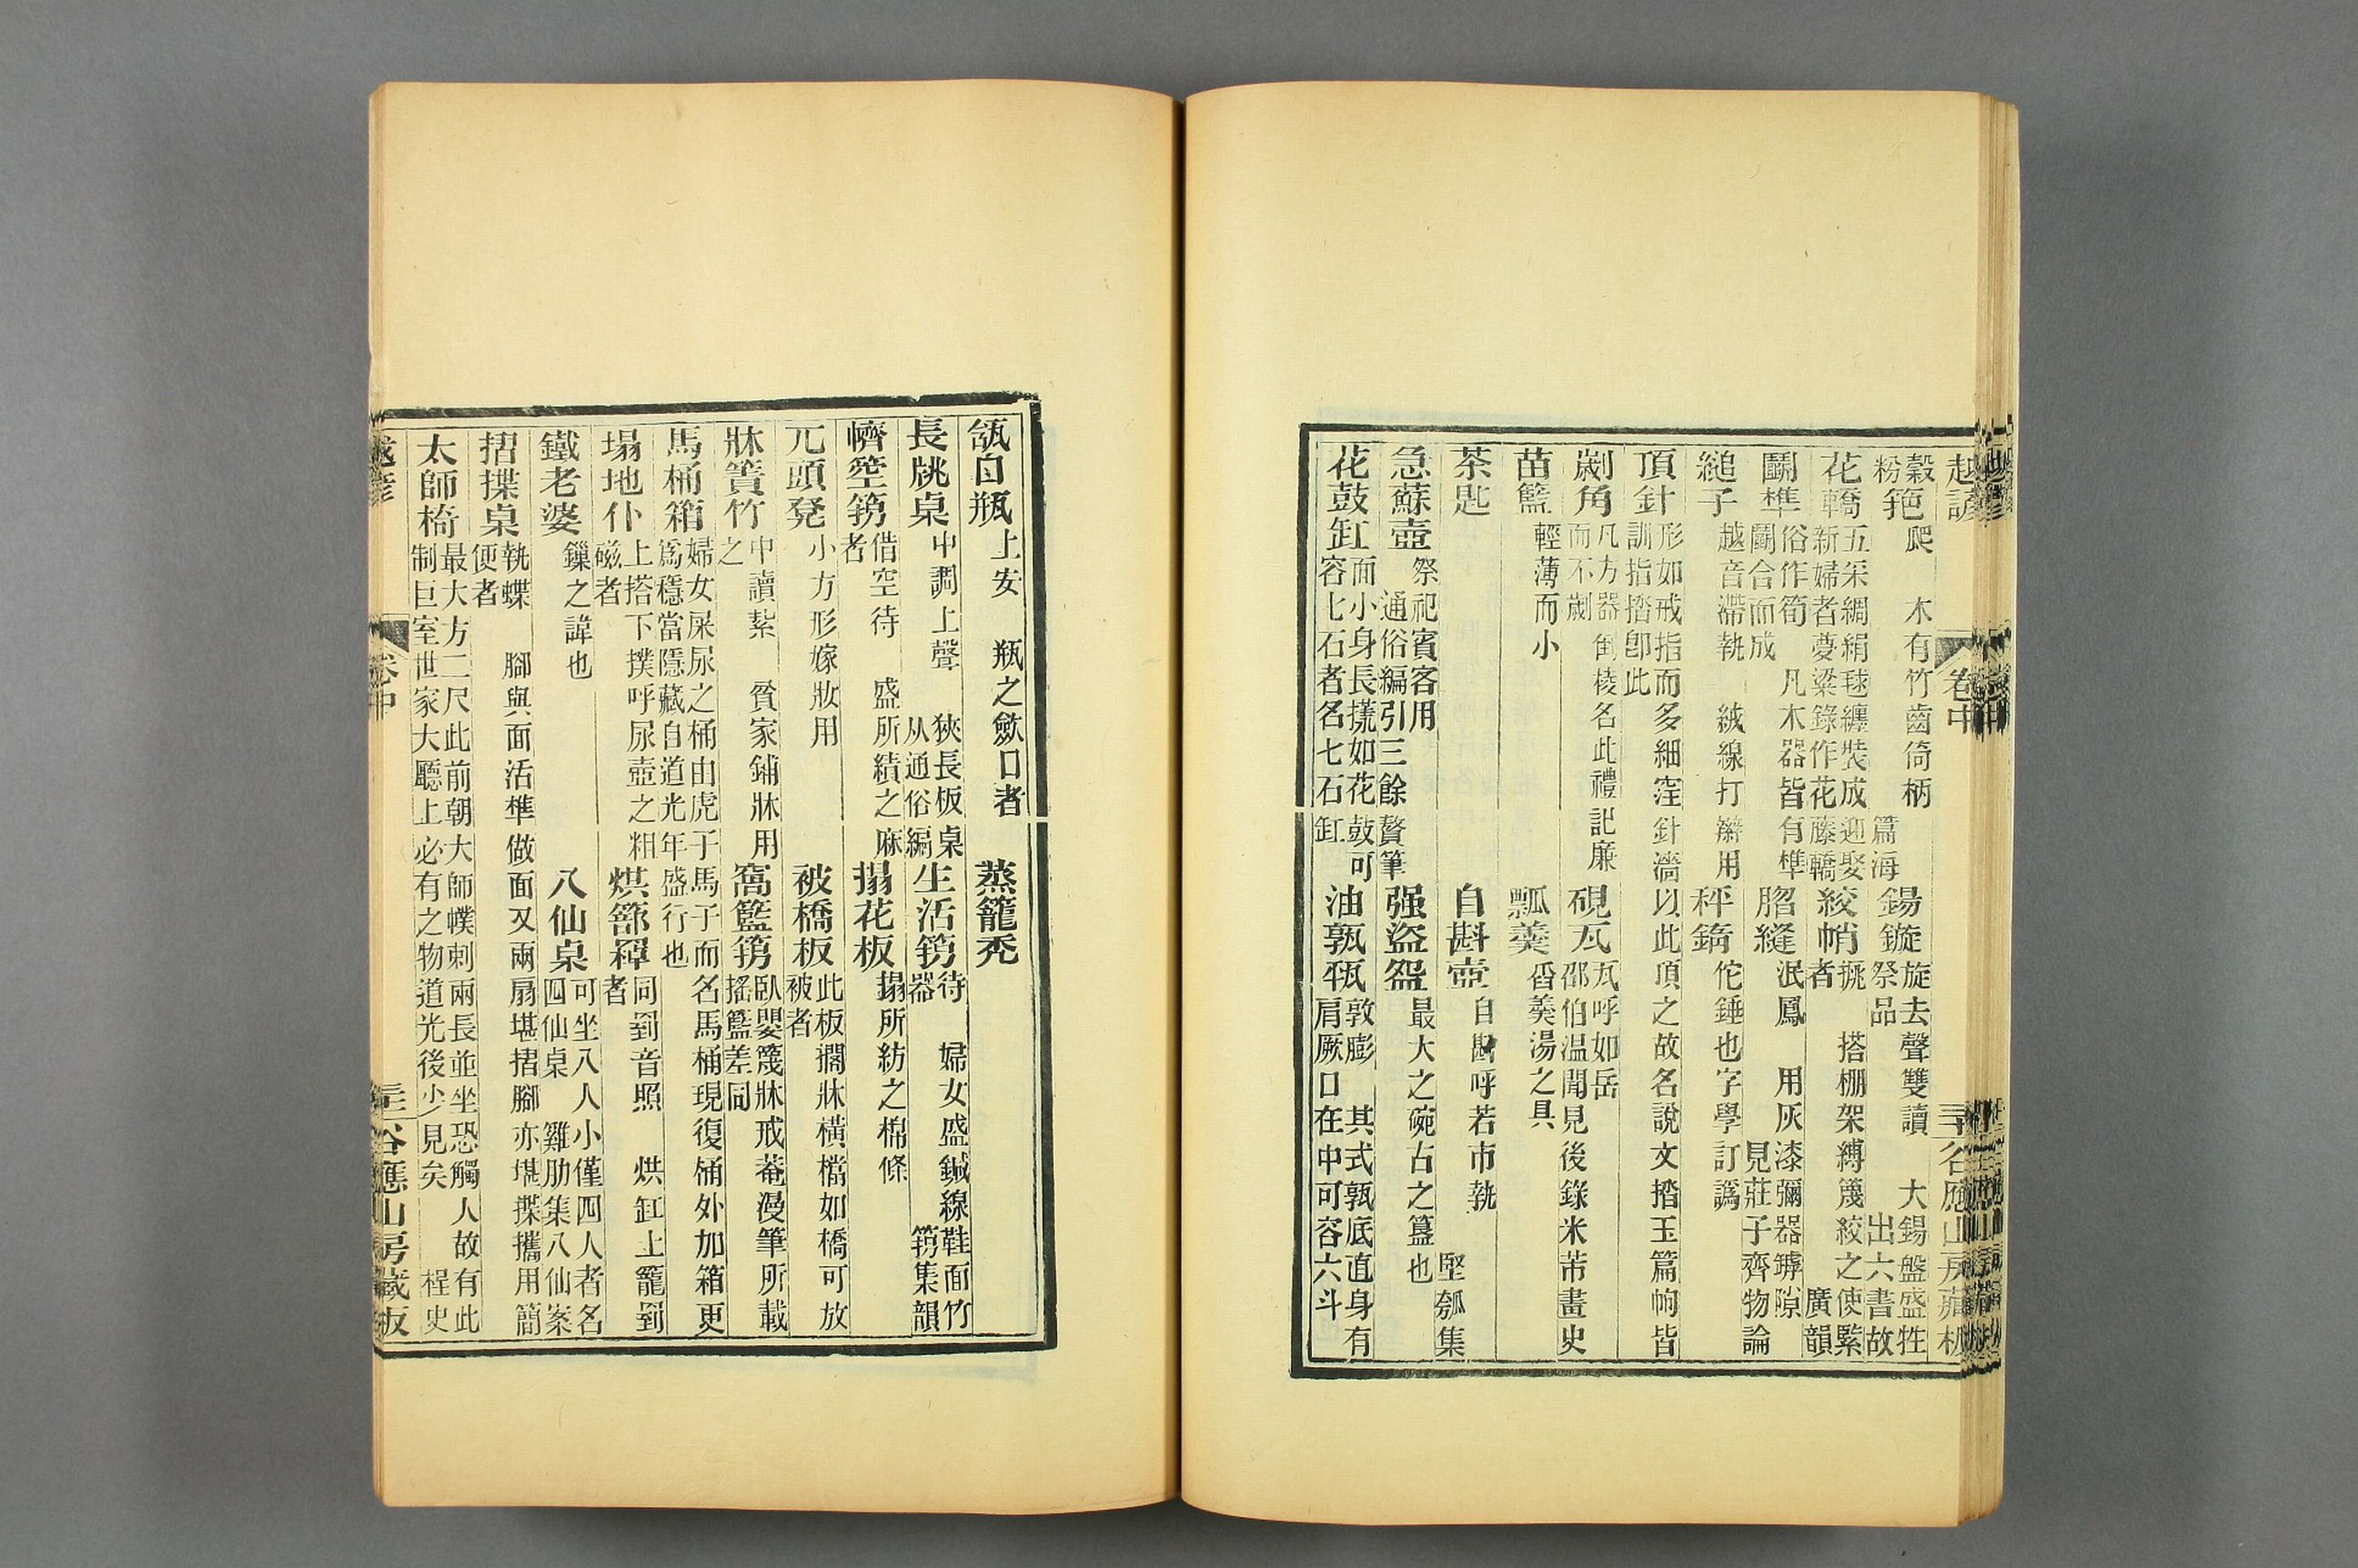 越諺
卷中
谷應山房藏板
穀筢 爬 木有竹齒倚柄
粉 篇海
錫鏇 旋去聲雙讀 大錫盤盛牲
祭品 出六書故
花轎 五采綢絹毬纏裝成迎娶
新婦者夢粱錄作花藤轎
絞帩 者 搭棚架縛篾絞之使緊
廣韻
鬭榫 俗作筍 凡木器皆有榫
鬭合而成
䐇縫 泯鳳 用灰漆彌器罅隙
見莊子齊物論
縋子 越音滯執 絨線打辮用
秤錥 佗錘也字學訂譌
頂針 形如戒指而多細窪針濇以此頂之故名說文揩玉篇㡓皆
訓指揩卽此
剗角 凡方器刓棱名此禮記廉
而不劌
硯瓦 瓦呼如岳
邵伯温聞見後錄米芾畫史
苗籃 輕薄而小
瓢羹 舀羹湯之具
茶匙
自斟壺 自斟呼若市執
堅瓠集
急蘇壺 祭祀賓客用
通俗編引三餘贅筆
强盜盌 最大之碗古之簋也
花鼓缸 面小身長㨪如花鼓可
容七石者名七石缸
油㼖瓶 敦膨 其式㼖底直身有
肩厥口在中可容六斗
瓻白瓶 上安 瓶之斂口者
蒸籠禿
長胱桌 中調上聲 狹長板桌
从通俗編
生活篣 待 婦女盛鍼線鞋面竹
器 篣集韻
㡭箜篣 借空待 盛所績之麻
者
搨花板 搨所紡之棉條
兀頭凳 小方形嫁妝用
被橋板 此板擱牀橫檔如橋可放
被者
牀簀竹 中讀紮 貧家鋪牀用
之
窩籃篣 臥嬰篾牀戒菴漫筆所載
搖籃差同
馬桶箱 婦女屎尿之桶由虎子馬子而名馬桶現復桶外加箱更
爲穩當隱藏自道光年盛行也
塌地仆 上搭下撲呼尿壺之粗
磁者
烘篰罩 同到音照 烘缸上籠到
者
鐵老婆 鏁之諱也
八仙桌 可坐八人小僅四人者名
四仙桌 雞肋集八仙案
摺揲桌 執蝶 腳與面活榫做面又兩扇堪摺腳亦堪揲攜用簡
便者
太師椅 最大方二尺此前朝大師幞刺兩長並坐恐觸人故有此
制巨室世家大廳上必有之物道光後少見矣 桯史
越諺
卷中
谷應山房藏板